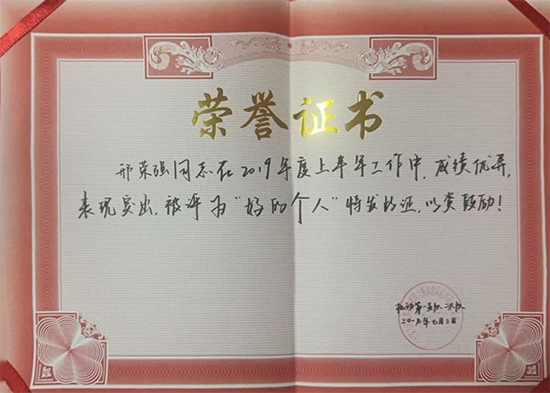 荣誉证书
邢荣强同志在2019年度上半年工作中,成绩优异,
表现突出,被评为"好的个人"特发此证,以资鼓励!
二〇一九年七月二日